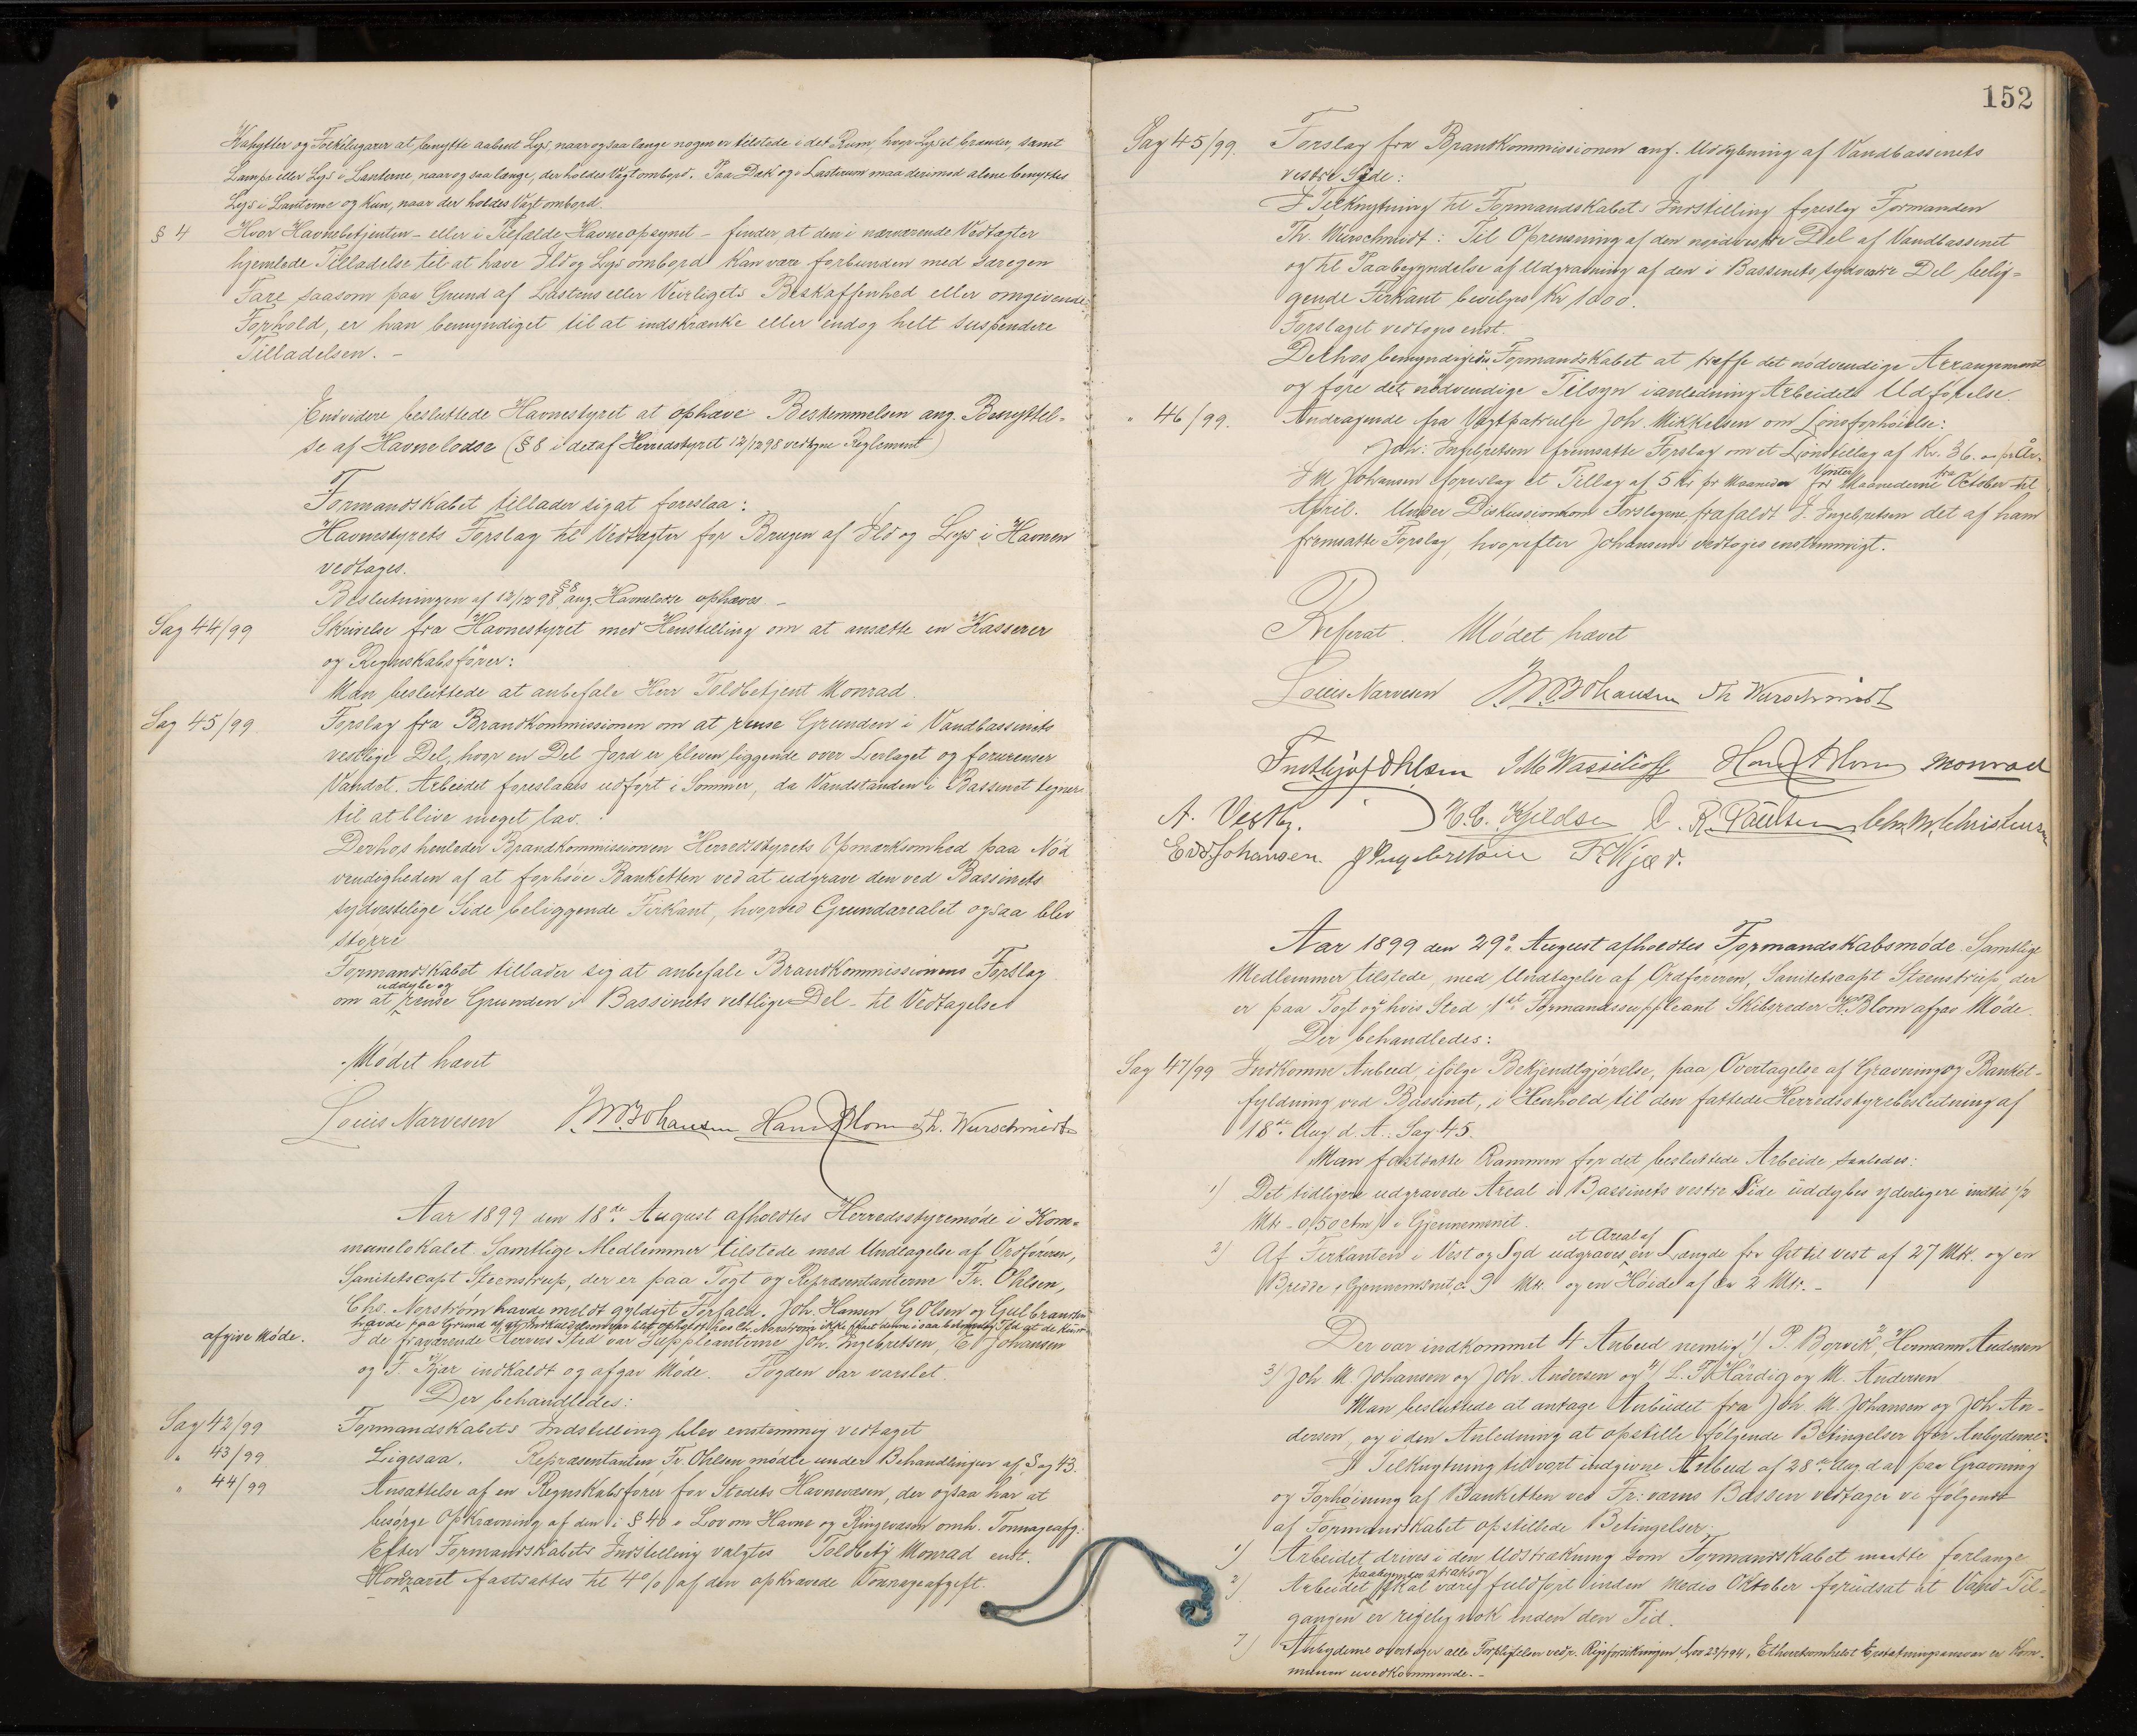 Kahytter og Folkelugarer at benytte aabent Lys, naar og saa længe nogen er tilstede i det Rum, hvor Lyset brænder, samt
Lampe eller Lys i Lanterne, naar og saa længe, der holdes Vagt ombord. Paa Dæk og i Lastirum maa derimod alene benyttes
Lys i Lanterne og kun, naar der holdes Vagt ombord.
§ 4 Hvor Havnebetjenten – eller i Tilfælde Havneopsynet – finder, at den i nærværende Vedtægter
hjemlede Tilladelse til at have Ild og Lys ombord kan være forbunden med særegen
Fare saasom paa Grund af Lastens eller Veirligets Beskaffenhed eller omgivende
Forhold, er han bemyndiget til at indskrænke eller endog helt suspendere
Tilladelsen. –
Endvidere besluttede Havnestyret at ophæve Bestemmelsen ang. Benyttel-
se af Havnelodse (§ 8 i det af Herredsstyret 12/12 98 vedtagne Reglement)
Formandskabet tillader sig at foreslaa:
Havnestyrets Forslag til Vedtægter for Brugen af Ild og Lys i Havnen
vedtages.
Beslutningen af 12/12 98 § 8 ang. Havnelodse ophæves. –
Sag 44/99 Skrivelse fra Havnestyret med Henstilling om at ansætte en Kasserer
og Regnskabsfører:
Man besluttede at anbefale Herr Toldbetjent Monrad.
Sag 45/99. Forslag fra Brandkommissionen om at rense Grunden i Vandbassinets
vestlige Del, hvor en Del Jord er bleven liggende over Lerlaget og forurenser
Vandet. Arbeidet foreslaaes udført i Sommer, da Vandstanden i Bassinet tegner
til at blive meget lav.
Derhos henleder Brandkommissionen Herredsstyrets Opmærksomhed paa Nød
vendigheden af at forhøie Banketten ved at udgrave den ved Bassinets
sydvestlige Side beliggende Firkant, hvorved Grundarealet ogsaa blev
større
Formandskabet tillader sig at anbefale Brandkommissionens Forslag
uddybe og
om at rense Grunden i Bassinets vestlige Del – til Vedtagelse
Mødet hævet
Louis Narvesen J. M. Johansen Hans Blom Th. Wurschmidt
Aar 1899 den 18de August afholdtes Herredsstyremøde i Kom-
munelokalet. Samtlige Medlemmer tilstede med Undtagelse af Ordføreren,
Sanitetscapt Steenstrup, der er paa Togt og Repræsentanterne Fr. Ohlsen,
Chs. Norstrøm havde meldt gyldigt Forfald. Joh. Hansen, G Olsen og Gulbransen
havde paa Grund af at Indkaldelsen var blet opholdt hos Ch. Norstrøm ikke faaet denne i saa betimelig Tid at de kunde
afgive Møde. I de fraværende Herrers Sted var Suppleanterne Joh. Ingebretsen, E Johansen
og F. Kjær indkaldt og afgav Møde. Fogden var varslet.
Der behandledes:
Sag 42/99 Formandskabets Indstilling blev enstemmig vedtaget
" 43/99. Ligesaa. Repræsentanten Fr. Ohlsen mødte under Behandlingen af Sag 43.
" 44/99 Ansættelse af en Regnskabsfører for Stedets Havnevæsen, der ogsaa har at
besørge Opkrævning af den i § 40 i Lov om Havne og Ringevæsen omh. Tonnageafg:
Efter Formandskabets Indstilling valgtes Toldbetj Monrad enst.
Honoraret fastsattes til 4% af den opkrævede Tonnageafgift.
152
Sag 45/99. Forslag fra Brandkommissionen ang. Uddybning af Vandbassinets
vestre Side:
I Tilknytning til Formandskabets Indstilling foreslog Formanden
Th. Wurschmidt: Til Oprensning af den nordvestre Del af Vandbassinet
og til Paabegyndelse af Udgravning af den i Bassinets sydvestre Del belig-
gende Firkant bevilges Kr 1000.
Forslaget vedtoges enst.
Derhos bemyndigedes Formandskabet at træffe det nødvendige Arrangement
og føre det nødvendige Tilsyn i anledning Arbeidets Udførelse.
" 46/99. Andragende fra Vagtpatrulje Joh. Mikkelsen om Lønsforhøielse:
Joh: Ingebretsen fremsatte Forslag om et Lønstillæg af Kr. 36. – pr År.
Vinter fra
J M Johansen foreslog et Tillæg af 5 Kr pr Maaned for Maanederne October til
April. Under Diskussionen om Forslagene frafaldt J. Ingebretsen det af ham
fremsatte Forslag, hvorefter Johansens vedtoges enstemmigt.
Referat. Mødet hævet
Louis Narvesen J. M. Johansen Th Wurschmidt
Fridtjof Ohlsen I M Wassilioff Hans Blom Monrad
A. Vestby. H. C. Kjeldsen C. R. Paulsen Chr. M. Christensen
Edv Johansen. J Ingebretsen Fr Kjær.
Aar 1899 den 29de August afholdtes Formandskabsmøde. Samtlige
Medlemmer tilstede, med Undtagelse af Ordføreren, Sanitetscapt Steenstrup der
er paa Togt og i hvis Sted 1ste Formandssuppleant Skibsreder H. Blom afgav Møde.
Der behandledes:
Sag 47/99 Indkomne Anbud, ifølge Bekjendtgjørelse, paa Overtagelse af Gravning og Banket-
fyldning ved Bassinet, i Henhold til den fattede Herredsstyrebeslutning af
18de Aug d. A. Sag 45.
Man fastsatte Rammen for det besluttede Arbeide saaledes:
1) Det tidligere udgravede Areal i Bassinets vestre Side uddybes yderligere indtil 1/2
Mtr – 0,50 ctm) i Gjennemsnit.
et Areal af
2) Af Firkanten i Vest og Syd udgraves en Længde fra Øst til Vest af 27 Mtr. og en
Bredde i Gjennemsnit ca 9 Mtr. og en Høide af ca 2 Mtr. –
Der var indkommet 4 Anbud nemlig 1) P. Borvik 2, Hermann Andersen
3) Joh M. Johansen og Joh. Andersen og 4) L. T. Hardig og M. Andersen
Man besluttede at antage Anbudet fra Joh M. Johansen og Joh An-
dersen, og i den Anledning at opstille følgende Betingelser for Anbyderne:
I Tilknytning til vort indgivne Anbud af 28de Aug d a paa Gravning
og Forhøining af Banketten ved Fr: værns Bassen vedtager vi følgende
af Formandskabet opstillede Betingelser:
1) Arbeidet drives i den Udstrækning som Formandskabet maatte forlange
paabegyndes straks og
2) Arbeidet skal være fuldført inden medio Oktober forudsat at Vand Til-
gangen er rigelig nok inden den Tid.
7) Anbyderne overtager alle Forpligtelser vedr. Rigsforsikringen, Lov 23/7 94, Ethvertsomhelst Erstatningsansvar er Kom-
munen uvedkommende. –